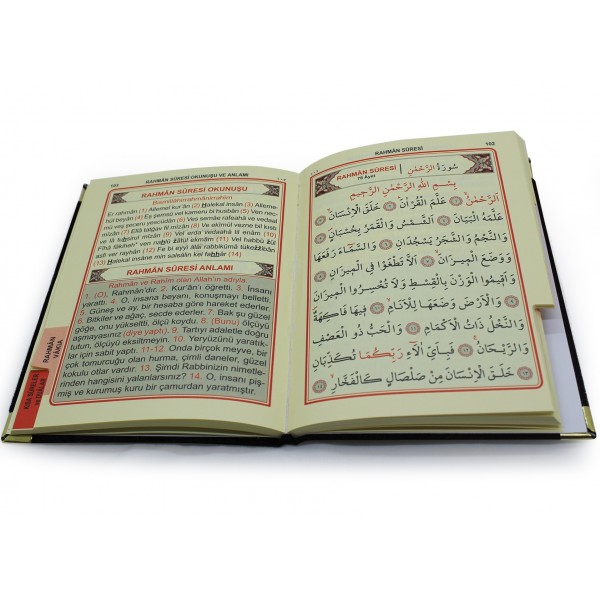 103 RAHMÂN SÛRESİ OKUNUŞU VE ANLAMI
RAHMÂN SÛRESİ OKUNUŞU
Bismillâhirrahmânirrahîm
Er-rahmân (1) Allemel kur'ân (2) Halekal insân (3) Alleme-
hul beyân (4) Eş şemsü vel kameru bi husbân (5) Ven nec-
mü veş şeceru yescüdân (6) Ves semâe rafeahâ ve vedaal
mîzân (7) Ellâ tatğav fil mîzân (8) Ve ekîmul vezne bil kıstı
ve lâ tuhsirul mîzân (9) Vel arda vedaahâ lil enâm (10)
Fîhâ fâkihetün ven nahlü zâtül ekmâm (11) Vel habbü zül
asfi ver rayhân (12) Fe bi eyyi âlâi rabbikümâ tükezzibân
(13) Halekal insâne min salsâlin kel fahhâr (14)
RAHMÂN SÛRESİ ANLAMI
Rahmân ve Rahîm olan Allah'ın adıyla.
1. (O), Rahmân'dır. 2. Kur'ân'ı öğretti. 3. İnsanı
yarattı. 4. O, insana beyanı, konuşmayı belletti.
5. Güneş ve ay, bir hesaba göre hareket ederler.
6. Bitkiler ve ağaç, secde ederler. 7. Bak şu güzel
göğe, onu yükseltti, ölçü koydu. 8. (Bunu) ölçüyü
aşmayasınız (diye yaptı). 9. Tartıyı adaletle doğru
yapın, ölçüyü eksiltmeyin. 10. Yeryüzünü yaratık-
lar için sabit yaptı. 11-12. Onda birçok meyve, bir
çok tomurcuğu olan hurma, çimli daneler, güzel
kokulu otlar vardır. 13. Şimdi Rabbinizin nimetle-
rinden hangisini yalanlarsınız? 14. O, insanı piş-
miş ve kurumuş kuru bir çamurdan yaratmıştır.
RAHMÂN
VÂKIA
KISA SÛRELER
RAHMÂN SÛRESİ 102
RAHMÂN SÛRESİ
78 Ayet
سُورَةُ الرَّحْمٰنِ
بِسْمِ اللّٰهِ الرَّحْمٰنِ الرَّحِيمِ
اَلرَّحْمٰنُ عَلَّمَ الْقُرْاٰنَ خَلَقَ الْاِنْسَانَ
عَلَّمَهُ الْبَيَانَ اَلشَّمْسُ وَالْقَمَرُ بِحُسْبَانٍ
وَالنَّجْمُ وَالشَّجَرُ يَسْجُدَانِ وَالسَّمَٓاءَ رَفَعَهَا
وَوَضَعَ الْمِيزَانَ اَلَّا تَطْغَوْا فِي الْمِيزَانِ
وَاَقِيمُوا الْوَزْنَ بِالْقِسْطِ وَلَا تُخْسِرُوا الْمِيزَانَ
وَالْاَرْضَ وَضَعَهَا لِلْاَنَامِ فِيهَا فَاكِهَةٌ
وَالنَّخْلُ ذَاتُ الْاَكْمَامِ وَالْحَبُّ ذُو الْعَصْفِ
وَالرَّيْحَانُ فَبِاَيِّ اٰلَٓاءِ رَبِّكُمَا تُكَذِّبَانِ
خَلَقَ الْاِنْسَانَ مِنْ صَلْصَالٍ كَالْفَخَّارِ